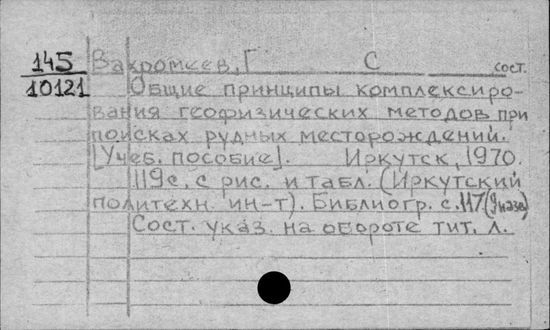 145 Вахромеев, Г С сост.
10121 Общие принципы комплексиро-
вания геофизических методов при
поисках рудных месторождений.
[Учеб. пособие]. Иркутск, 1970.
119с. с рис. и табл. (Иркутский
политехн. ин-т). Библиогр. с. 117 (9 назв)
Сост. указ. на обороте тит. л.